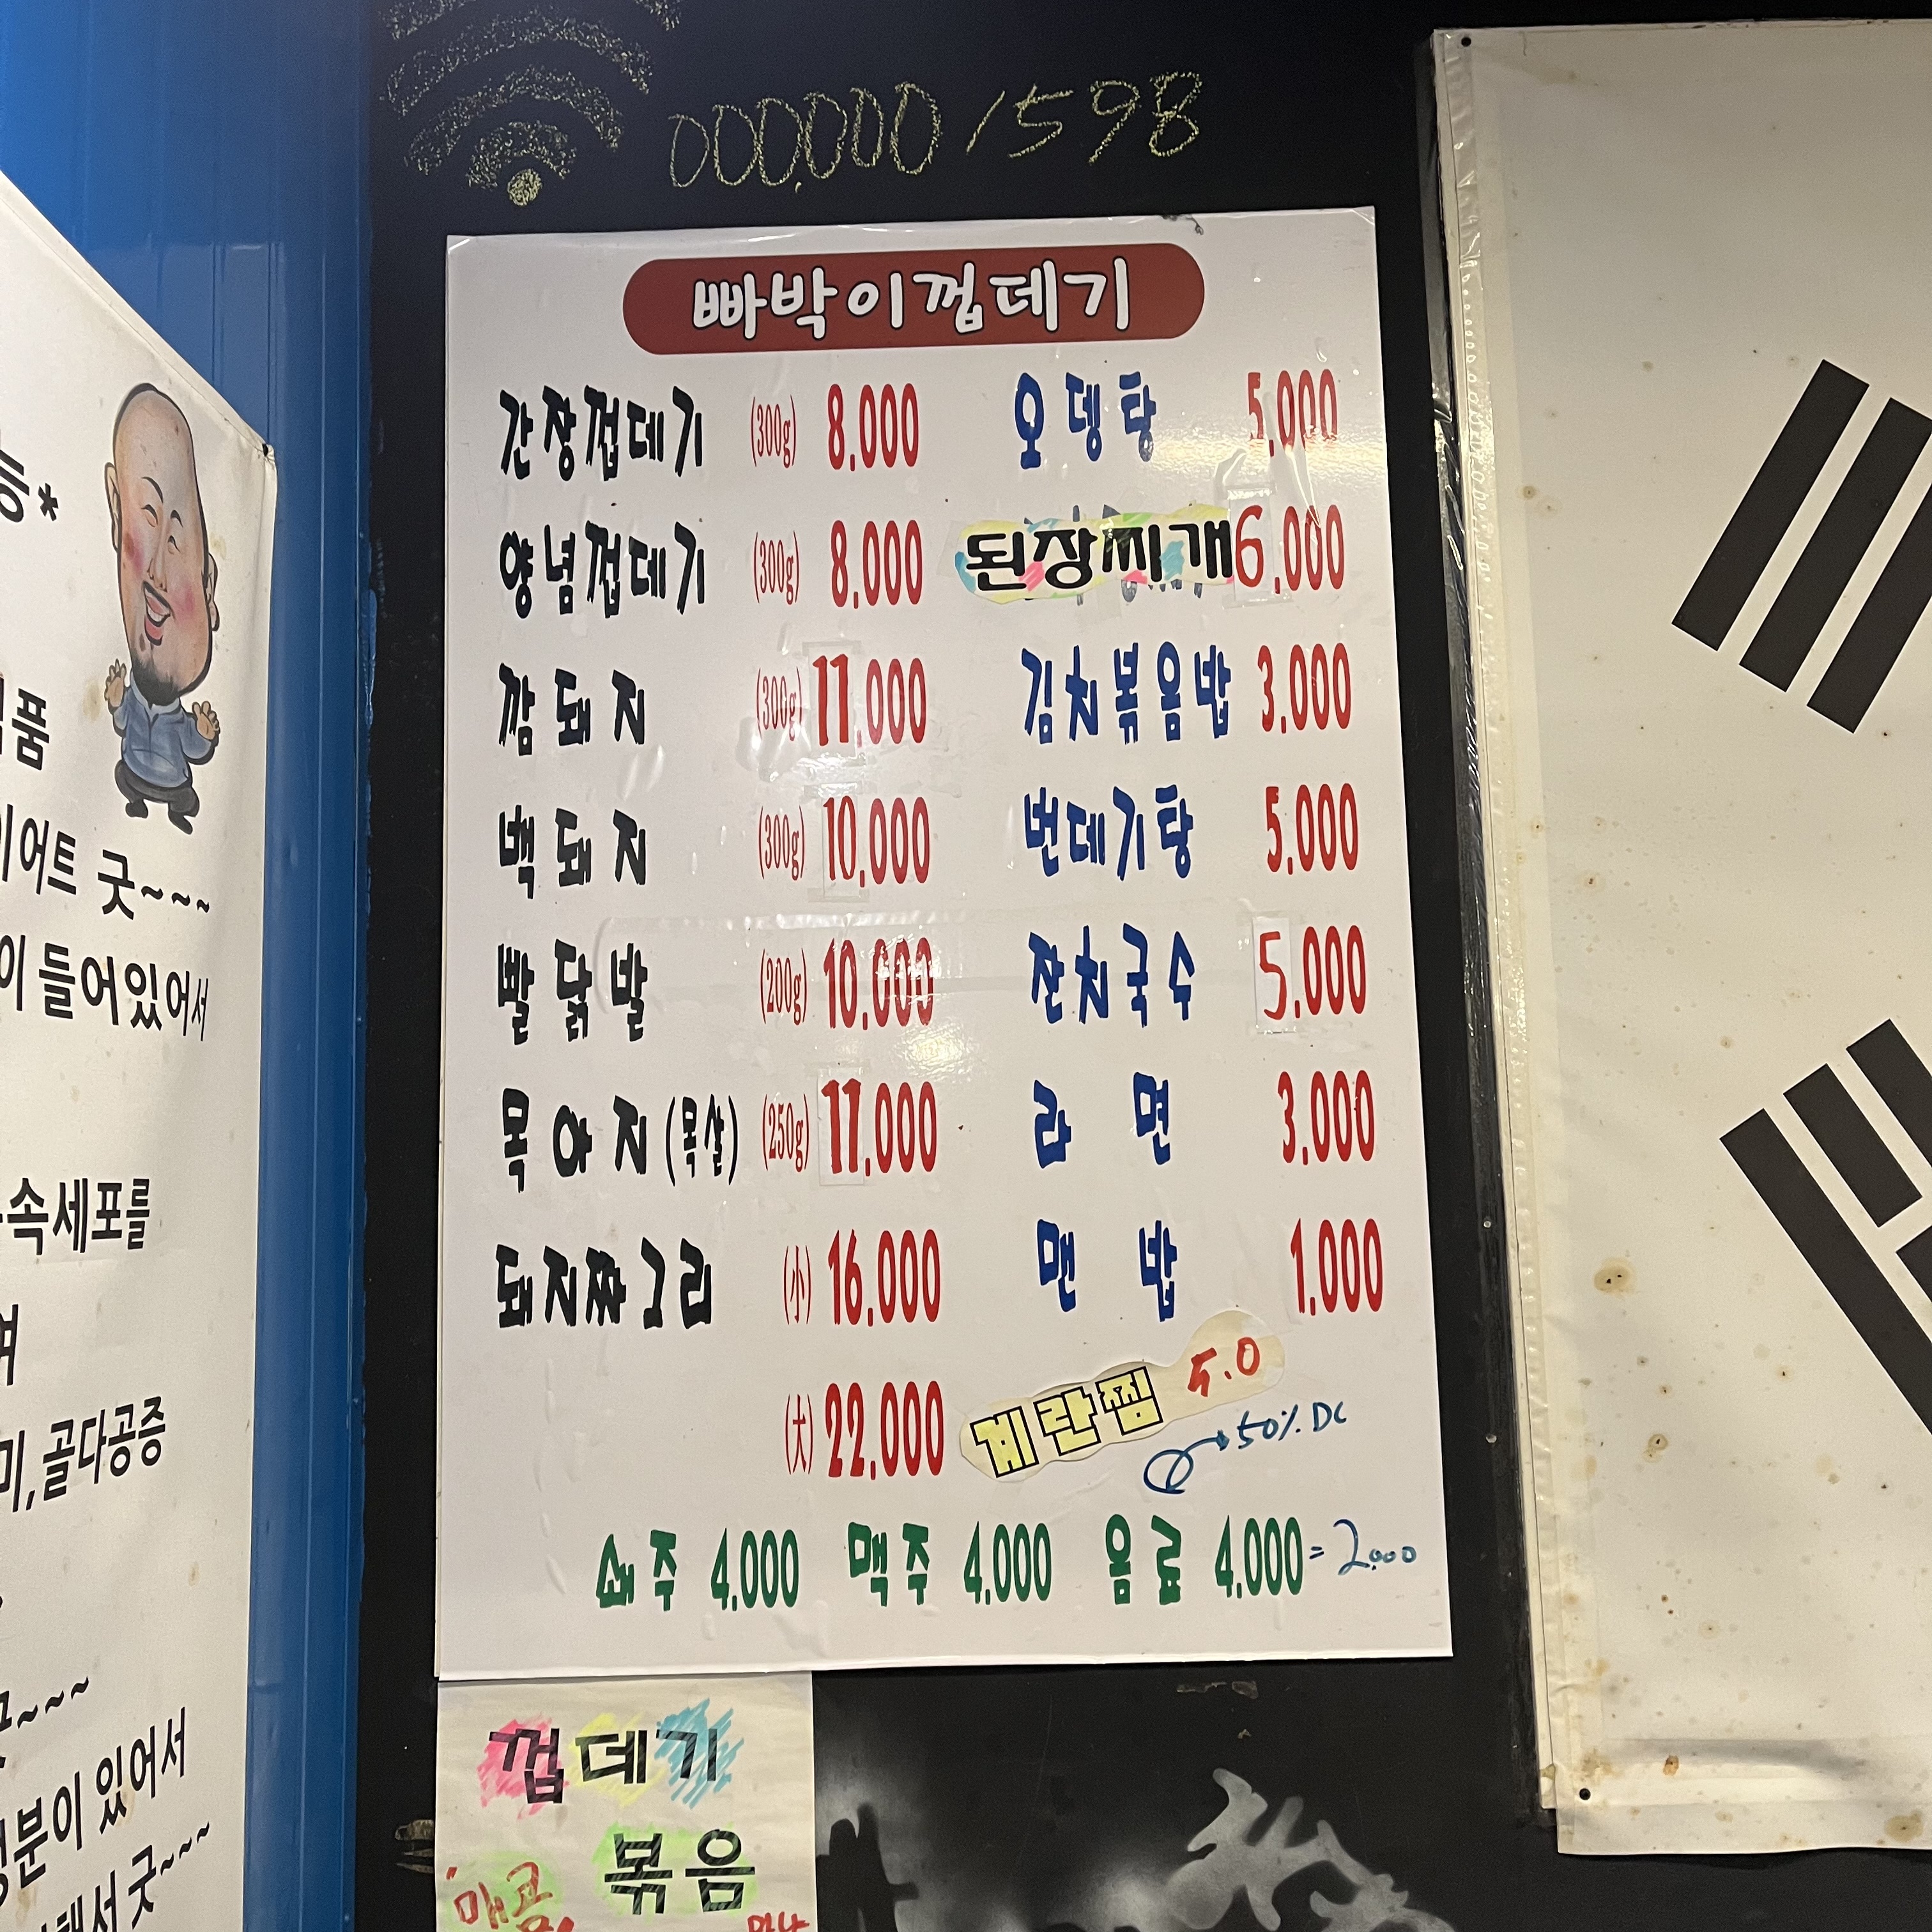 0000001598
빠박이껍데기
간장껍데기 (300g) 8.000 오뎅탕 5.000
양념껍데기 (300g) 8.000 된장찌개 6.000
깜돼지 (300g) 11.000 김치볶음밥 3.000
백돼지 (300g) 10.000 번데기탕 5.000
빨닭발 (200g) 10.000 잔치국수 5.000
목아지(목살) (250g) 11.000 라면 3.000
돼지짜그리 (小) 16.000 맨밥 1.000
(大) 22.000 계란찜 5.0
50% DC
쐬주 4.000 맥주 4.000 음료 4.000 = 2.000
껍데기
볶음
매콤
능*
품
이어트 굿~~~
이 들어있어서
속세포를
여
미,골다공증
~~~
성분이 있어서
해서 굿~~~